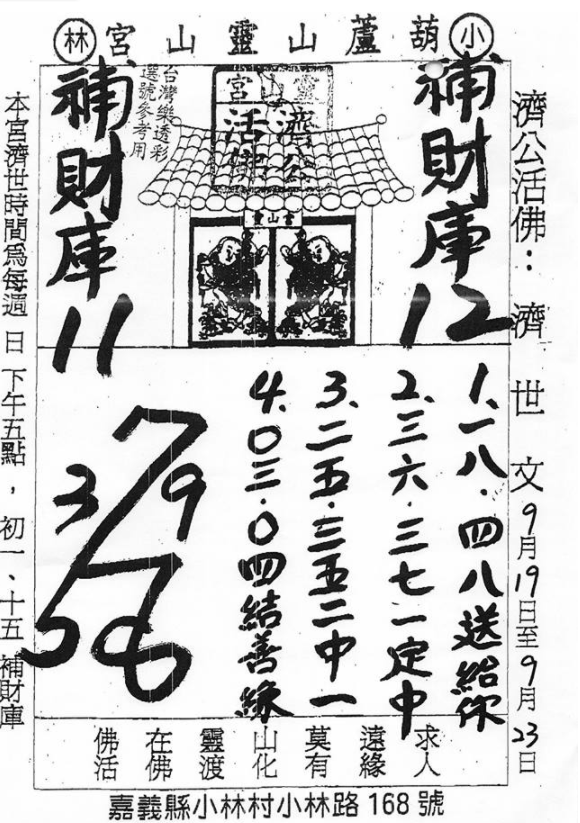 小 葫蘆山靈山宮 林
濟公活佛：濟世文 9月19日至9月23日
補財庫12
靈山宮
濟公活佛
台灣樂透彩
選號參考用
補財庫11
靈山宮
1、一八．四八送給你
2、三六．三七一定中
3、二五．三五二中一
4、0三．0四結善緣
7
3 9
5 6
求人
遠緣
莫有
山化
靈渡
在佛
佛活
本宮濟世時間爲每週日下午五點，初一、十五補財庫
嘉義縣小林村小林路168號